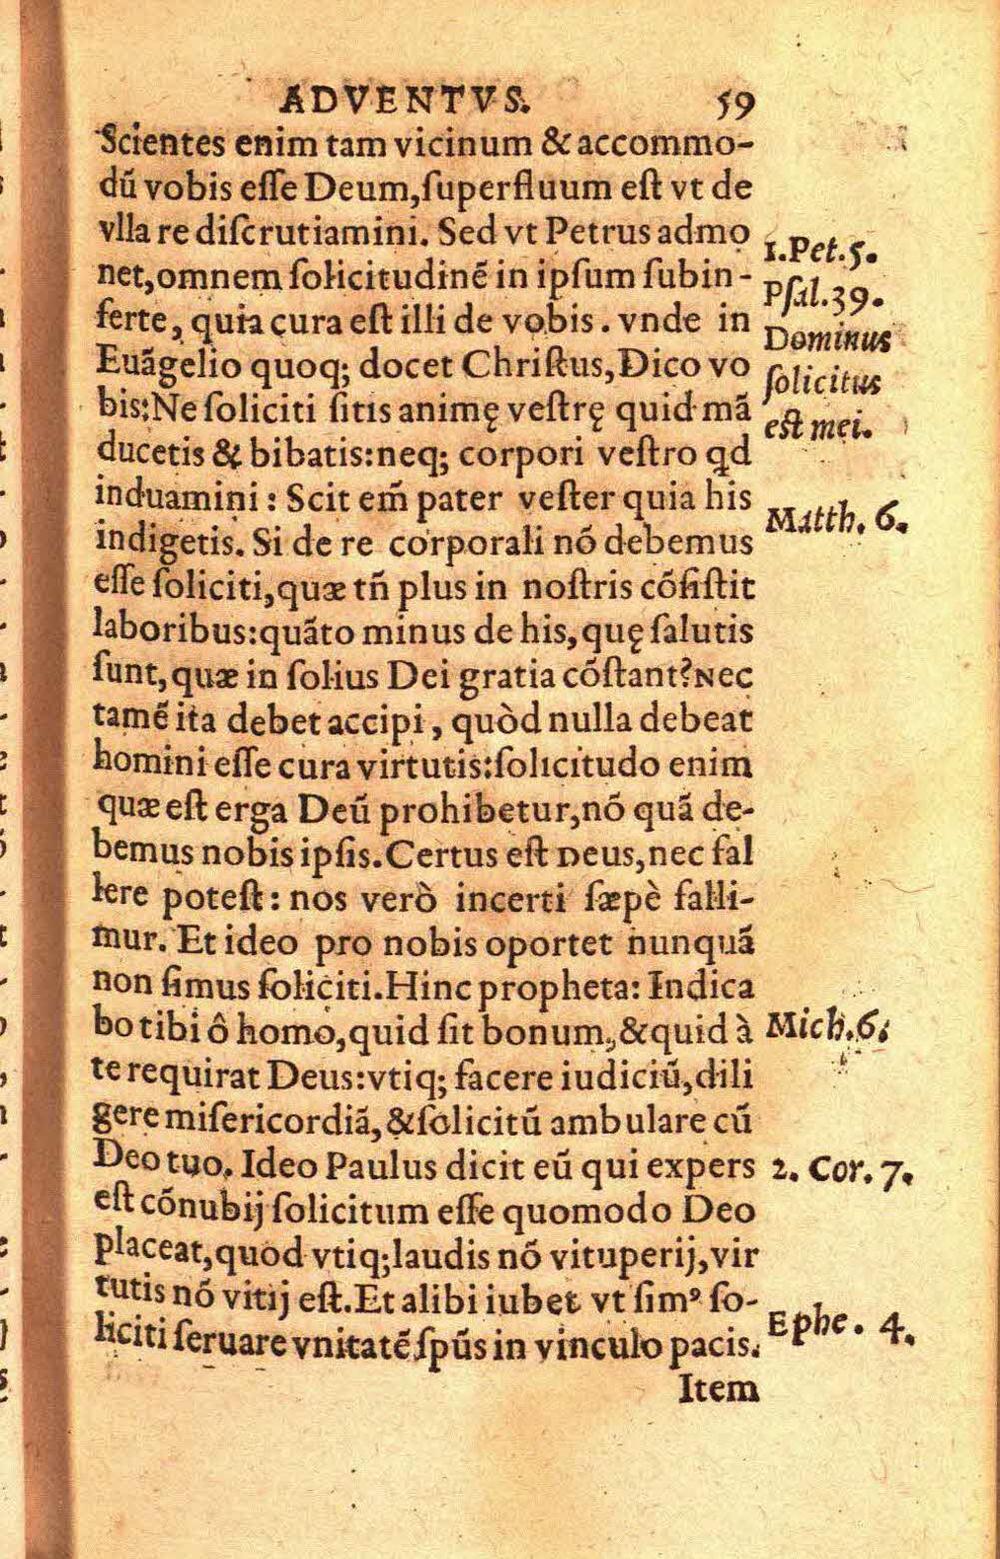 ADVENTVS. 59
Scientes enim tam vicinum & accommo-
dũ vobis eſſe Deum, ſuperfluum eſt vt de
vlla re diſcrutiamini. Sed vt Petrus admo
net, omnem ſolicitudinẽ in ipſum ſubin-
ferte, quia cura eſt illi de vobis. vnde in
Euãgelio quoq; docet Chriſtus, Dico vo
bis: Ne ſoliciti ſitis animę veſtrę quid mã
ducetis & bibatis: neq; corpori veſtro qd
induamini: Scit em̃ pater veſter quia his
indigetis. Si de re corporali nõ debemus
eſſe ſoliciti, quæ tñ plus in noſtris cõſiſtit
laboribus: quãto minus de his, quę ſalutis
ſunt, quæ in ſolius Dei gratia cõſtant? Nec
tamẽ ita debet accipi, quòd nulla debeat
homini eſſe cura virtutis: ſolicitudo enim
quæ eſt erga Deũ prohibetur, nõ quã de-
bemus nobis ipſis. Certus eſt Deus, nec fal
lere poteſt: nos verò incerti ſæpè falli-
mur. Et ideo pro nobis oportet nunquã
non ſimus ſoliciti. Hinc propheta: Indica
bo tibi ô homo, quid ſit bonum, & quid à
te requirat Deus: vtiq; facere iudiciũ, dili
gere miſericordiã, & ſolicitũ ambulare cũ
Deo tuo. Ideo Paulus dicit eũ qui expers
eſt cõnubij ſolicitum eſſe quomodo Deo
placeat, quod vtiq; laudis nõ vituperij, vir
tutis nõ vitij eſt. Et alibi iubet vt ſimꝰ ſo-
liciti ſeruare vnitatẽ ſpũs in vinculo pacis.
Item
1. Pet. 5.
Pſal. 39.
Dominus
ſolicitus
eſt mei.
Matth. 6.
Mich. 6.
2. Cor. 7.
Ephe. 4.